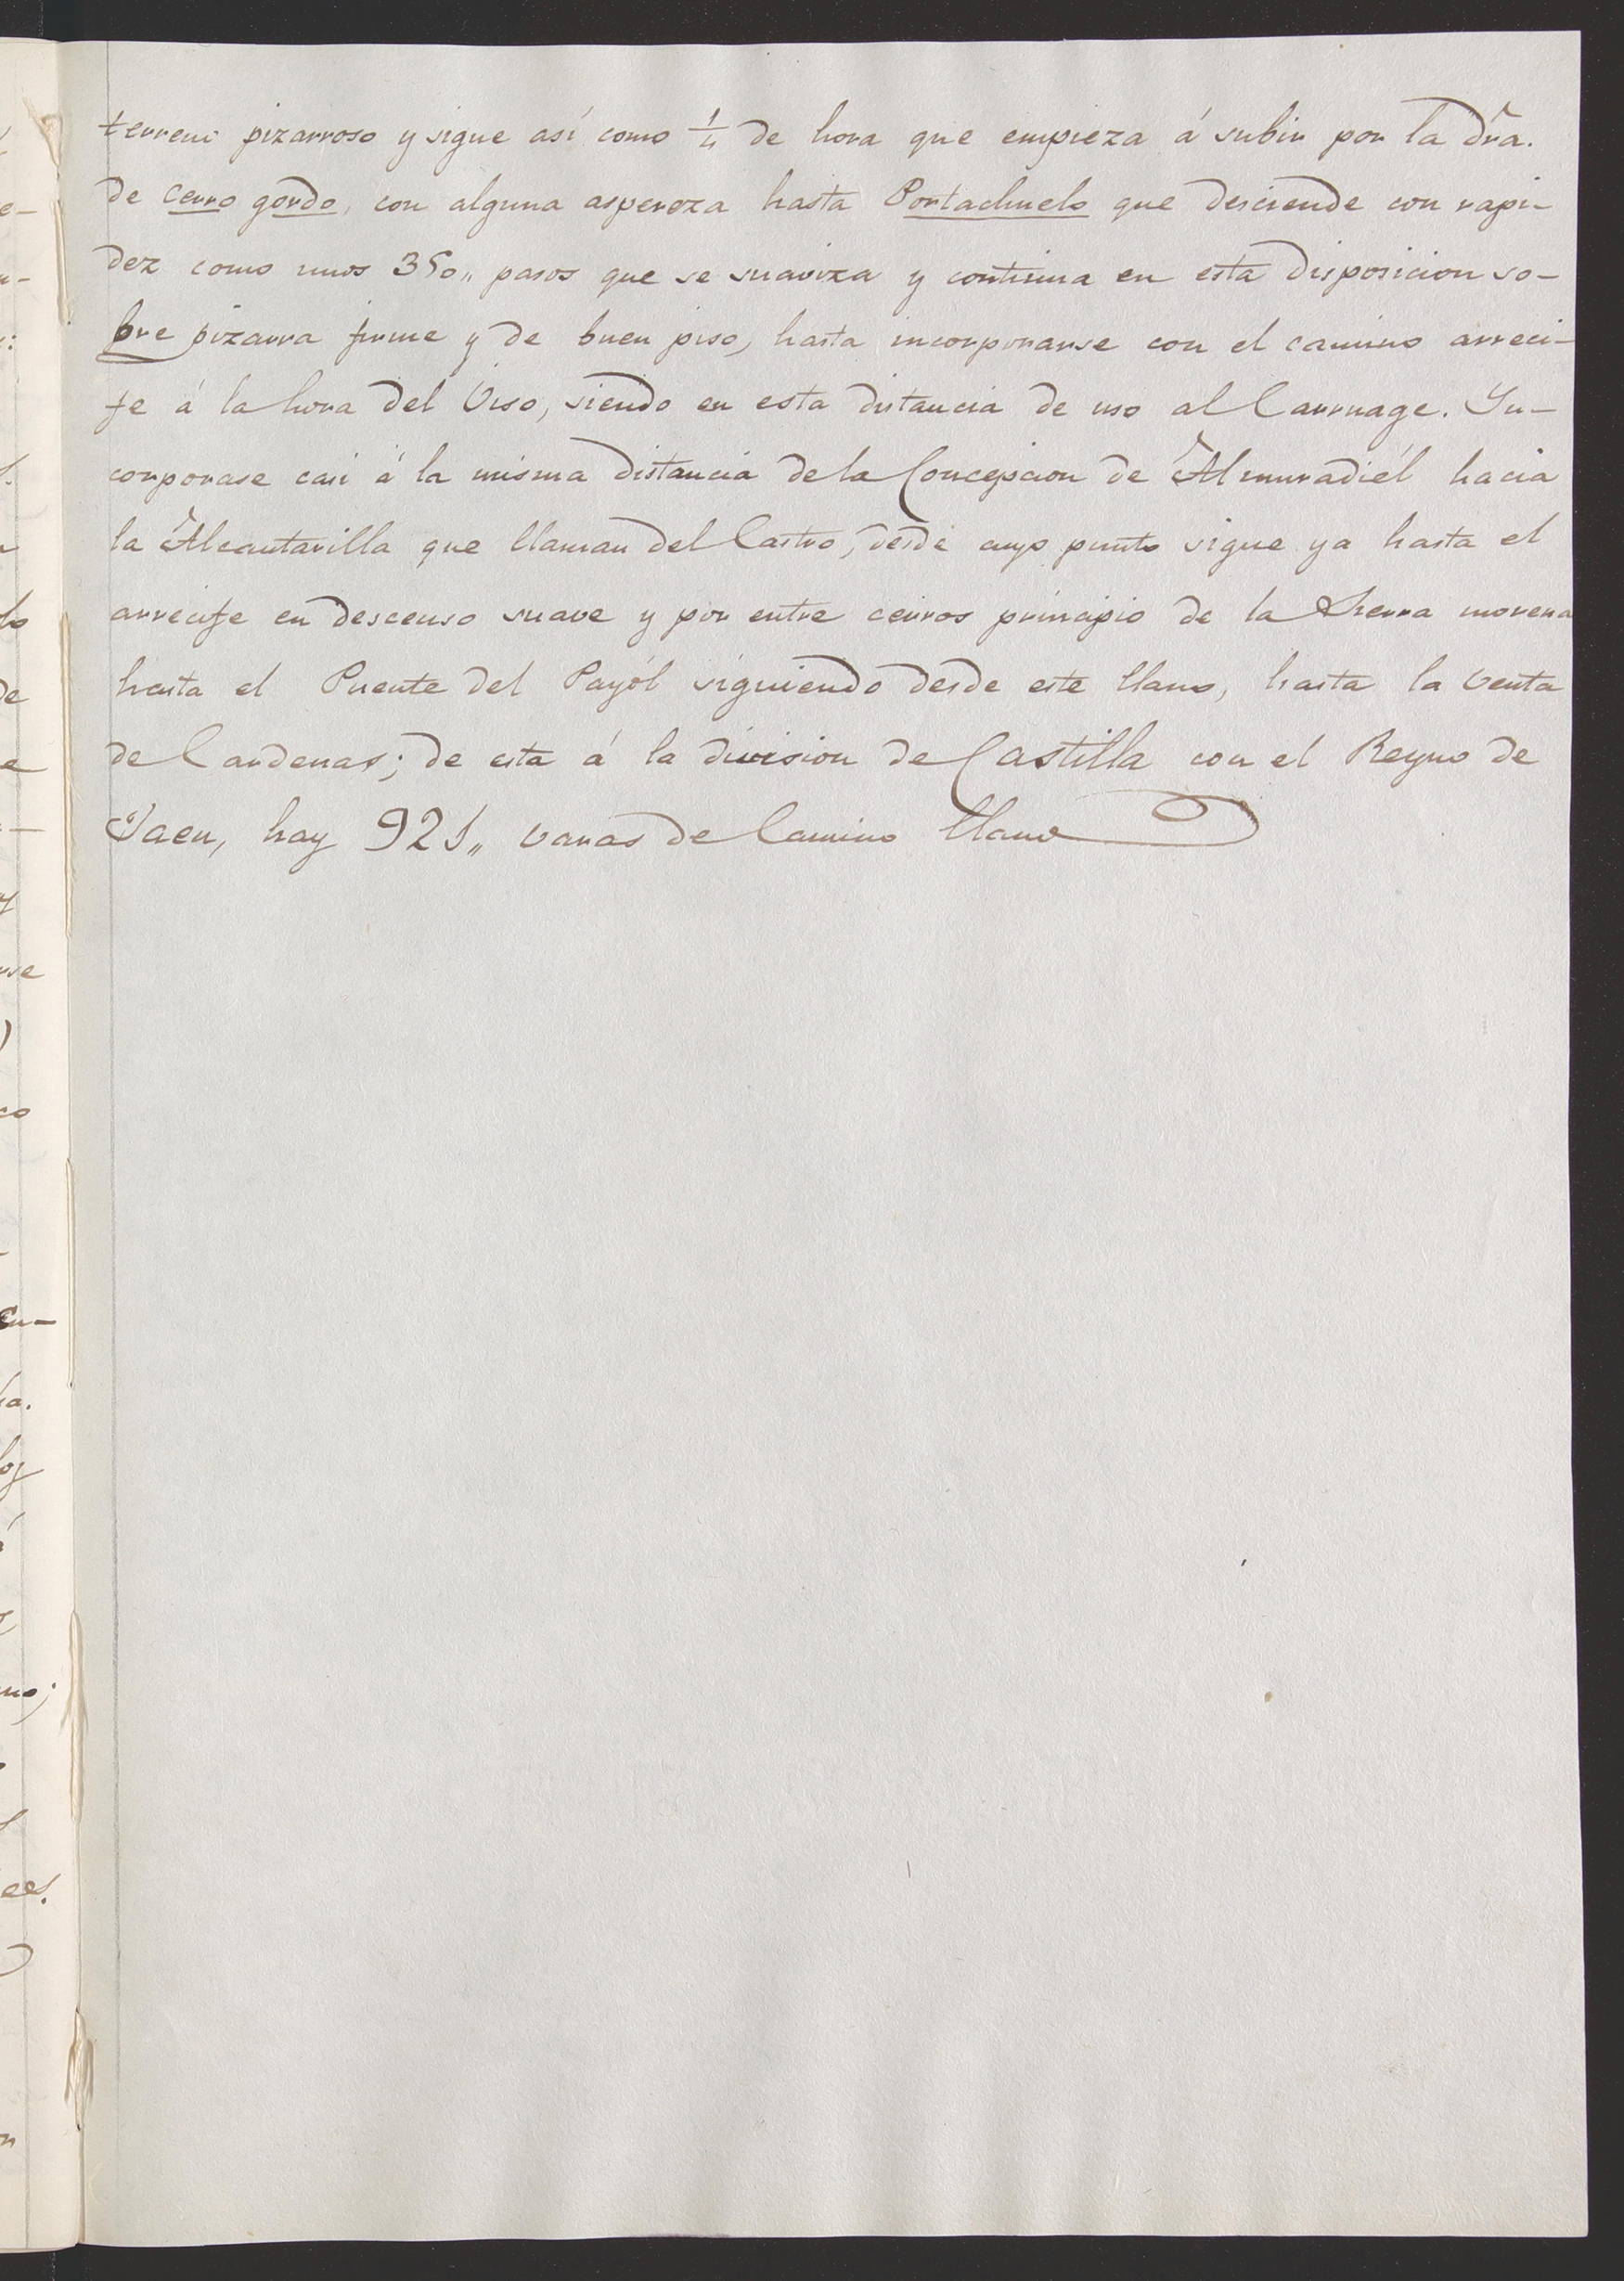 terreno pizarroso y sigue así como 1/4 de hora que empieza á subir por la dra.
de cerro gordo, con alguna aspereza hasta Portachuelo que desciende con rapi-
dez como unos 350,, pasos que se suaviza y continua en esta disposicion so-
bre pizarra firme y de buen piso, hasta incorporarse con el camino arreci-
fe á la hora del Viso, siendo en esta distancia de uso al Carruage. In-
corporase casi á la misma distancia de la Concepcion de Almuradiél hacia
la Alcantarilla que llaman del Castro, desde cuyo punto sigue ya hasta el
arrecife en descenso suave y por entre cerros principio de la Sierra morena
hasta el Puente del Payól siguiendo desde este llano, hasta la Venta
de Cardenas; de esta á la division de Castilla con el Reyno de
Jaen, hay 921,, varas de Camino llano